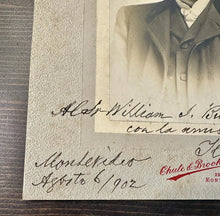 Al Sr William S. 
con la
Montevideo
Agosto 6/902
Chute & Brook